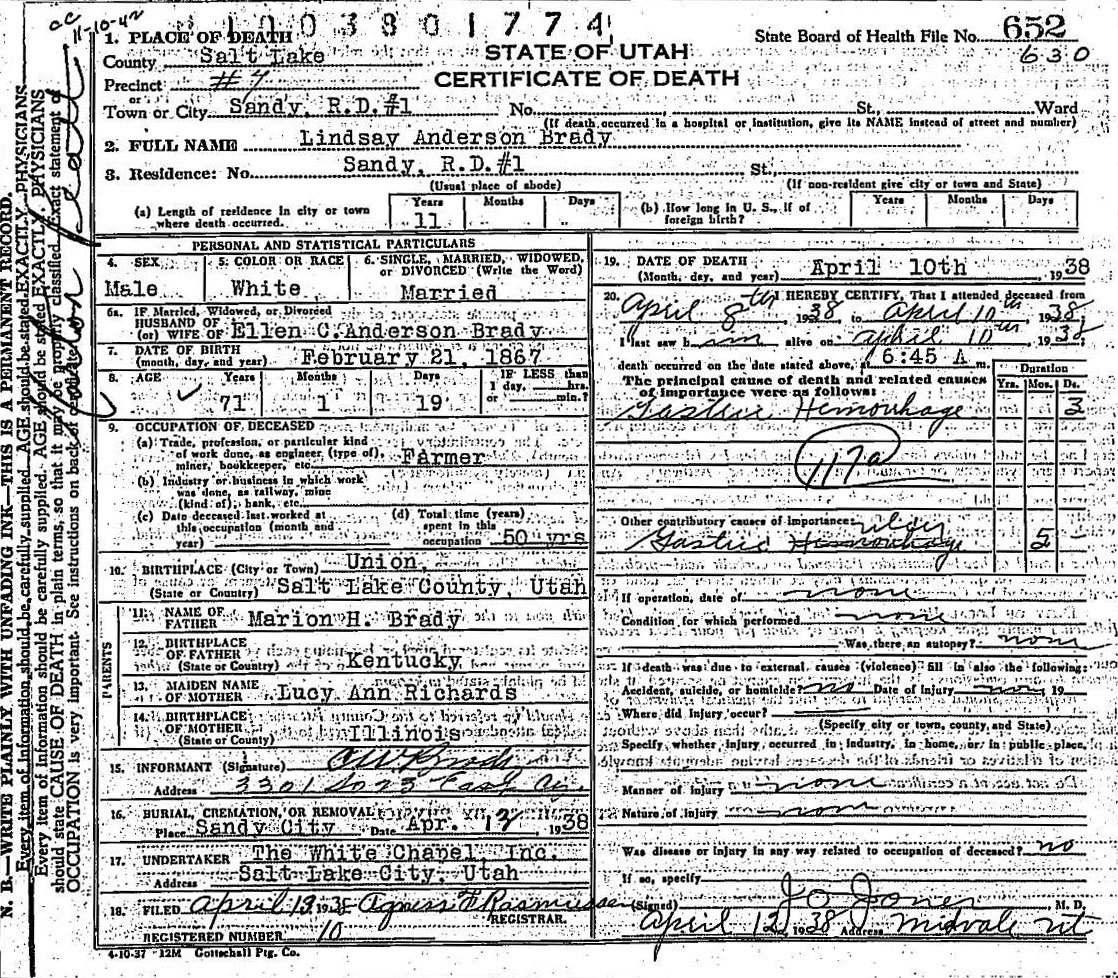 11-10-42
1003801774
1. PLACE OF DEATH
County Salt Lake
Precinct #7
or
Town or City Sandy, R.D.#1 No. St., Ward
STATE OF UTAH
CERTIFICATE OF DEATH
State Board of Health File No. 652
630
(If death occurred in a hospital or institution, give its NAME instead of street and number)
2. FULL NAME Lindsay Anderson Brady
3. Residence: No. Sandy, R.D.#1 St.,
(Usual place of abode) (If non-resident give city or town and State)
(a) Length of residence in city or town where death occurred. Years 11 Months Days
(b) How long in U. S., if of foreign birth? Years Months Days
PERSONAL AND STATISTICAL PARTICULARS
4. SEX Male
5. COLOR OR RACE White
6. SINGLE, MARRIED, WIDOWED, or DIVORCED (Write the Word) Married
6a. If Married, Widowed, or Divorced
HUSBAND OF
(or) WIFE OF Ellen C. Anderson Brady
7. DATE OF BIRTH
(month, day, and year) February 21, 1867
8. AGE Years 71 Months 1 Days 19 IF LESS than 1 day, hrs. or min.?
9. OCCUPATION OF DECEASED
(a) Trade, profession, or particular kind
of work done, as engineer (type of),
miner, bookkeeper, etc. Farmer
(b) Industry or business in which work
was done, as railway, mine
(kind of), bank, etc.
(c) Date deceased last worked at
this occupation (month and
year)
(d) Total time (years)
spent in this
occupation 50 yrs
10. BIRTHPLACE (City or Town) Union,
(State or Country) Salt Lake County, Utah
PARENTS
11. NAME OF
FATHER Marion H. Brady
12. BIRTHPLACE
OF FATHER
(State or Country) Kentucky
13. MAIDEN NAME
OF MOTHER Lucy Ann Richards
14. BIRTHPLACE
OF MOTHER
(State or County) Illinois
15. INFORMANT (Signature)
Address 3301 So 23 East
16. BURIAL, CREMATION, OR REMOVAL
Place Sandy City Date Apr. 13 1938
17. UNDERTAKER The White Chapel, Inc.
Address Salt Lake City, Utah
18. FILED April 13 1938 Agness F Rasmussen
REGISTRAR.
REGISTERED NUMBER 10
4-10-37 12M Gottschall Ptg. Co.
19. DATE OF DEATH
(Month, day, and year) April 10th 1938
20. I HEREBY CERTIFY, That I attended deceased from
April 8th 1938 to April 10th 1938
I last saw him alive on April 10th 1938
death occurred on the date stated above, at 6:45 A m.
The principal cause of death and related causes
of importance were as follows:
Duration
Yrs. Mos. Ds.
Gastric Hemorrhage 3
117a
Other contributory causes of importance:
ulcer
Gastric Hemorrhage 5
If operation, date of none
Condition for which performed none
Was there an autopsy? none
If death was due to external causes (violence) fill in also the following:
Accident, suicide, or homicide? no Date of injury 19
Where did injury occur?
(Specify city or town, county, and State)
Specify whether injury occurred in industry, in home, or in public place.
Manner of injury none
Nature of injury none
Was disease or injury in any way related to occupation of deceased? no
If so, specify
(Signed) J O Jones, M. D.
April 12, 1938 Address Midvale Ut
N. B.—WRITE PLAINLY WITH UNFADING INK—THIS IS A PERMANENT RECORD.
Every item of information should be carefully supplied. AGE should be stated EXACTLY. PHYSICIANS
Every item of information should be carefully supplied. AGE should be stated EXACTLY. PHYSICIANS
should state CAUSE OF DEATH in plain terms, so that it may be properly classified. Exact statement of
OCCUPATION is very important. See instructions on back of certificate.